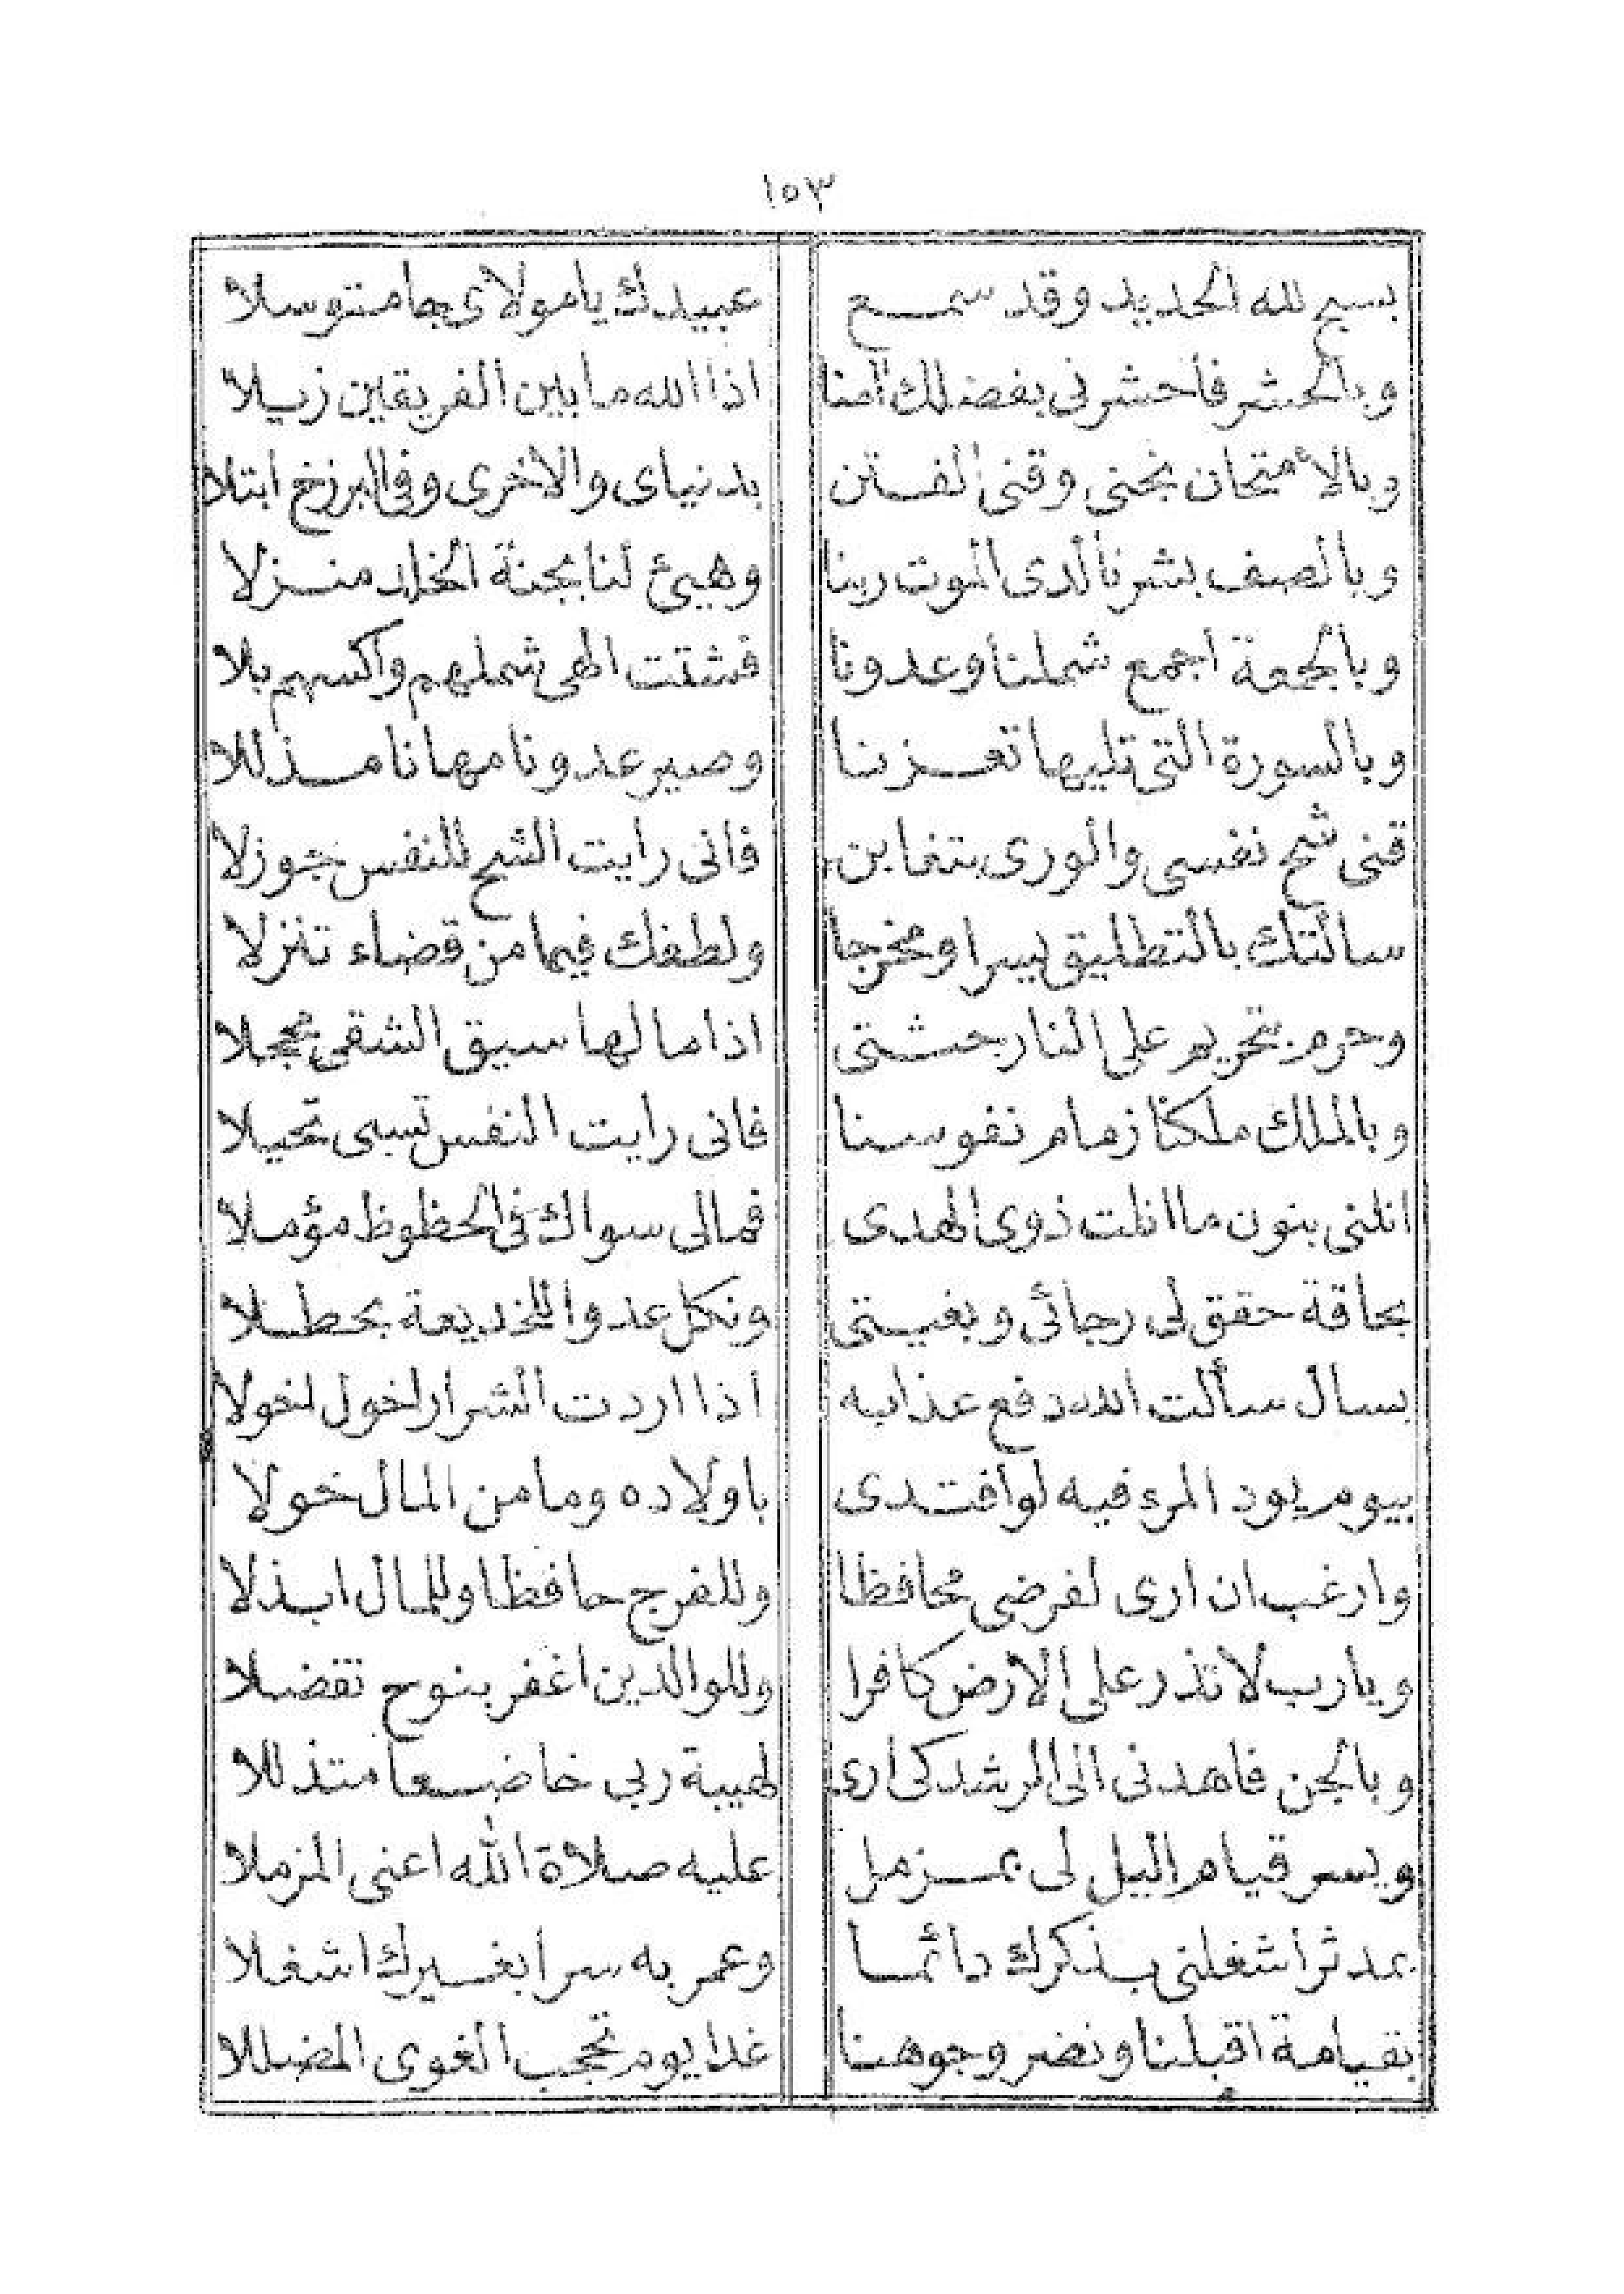 ١٥٣
بسبح لله الحديد وقد سمع عبيدك يامولاى بها متوسلا
وبالحشر فأحشرنى بفضلك آمنا اذا الله مابين الفريقين زيلا
وبالأمتحان نجنى وقنى الفتن بدنياى والأخرى وفى البرزخ ابتلا
وبالصف بشرنا لدى الموت ربنا وهيئ لنا بجنة الخلد منزلا
وبالجمعة اجمع شملنا وعدونا فشتت الهى شملهم واكسهم بلا
وبالسورة التى تليها تعزنا وصير عدونا مهانا مذللا
قنى شح نفسى والورى بتغابن فانى رايت الشح للنفس جوزلا
سالتك بالتطليق يسرا ومخرجا ولطفك فيما من قضاء تنزلا
وحرم بتحريم على النار جثتى اذا مالها سيق الشقى مججلا
وبالملك ملكنا زمام نفوسنا فانى رايت النفس تسبى تحيلا
انلنى بنون ما انلت ذوى الهدى فمالى سواك فى الحظوظ مؤملا
بحاقة حقق لى رجائى وبغيتى ونكل عدوا للخديعة بحطلا
بسال سألت الله دفع عذابه اذا اردت الشرار لخول لخولا
بيوم يود المرء فيه لو افتدى باولاده وما من المال خولا
وارغب ان ارى لفرضى محافظا وللفرج حافظا وللمال ابذلا
ويارب لا تذر على الارض كافرا وللوالدين اغفر بنوح تفضلا
وبالجن فاهدنى الى الرشد كى ارى لهيبة ربى خاضعا متذللا
ويسر قيام اليل لى بمزمل عليه صلاة الله اعنى المزملا
بمدثر أشغلنى بذكرك دائما وعمر به سرا بغيرك اشغلا
بقيامة اقبلنا ونضر وجوهنا غدا يوم تحجب الغوى المضللا